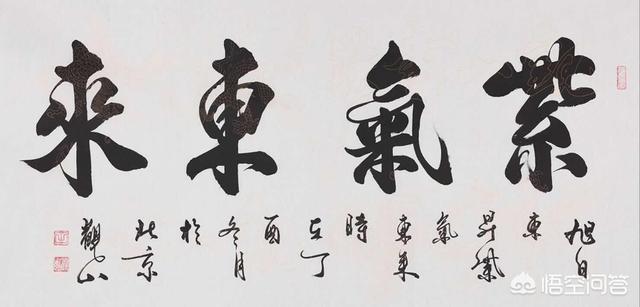 紫氣東來
旭日
東
昇紫
氣
東来
時
在丁
酉
冬月
於
北京
觀山
悟空问答